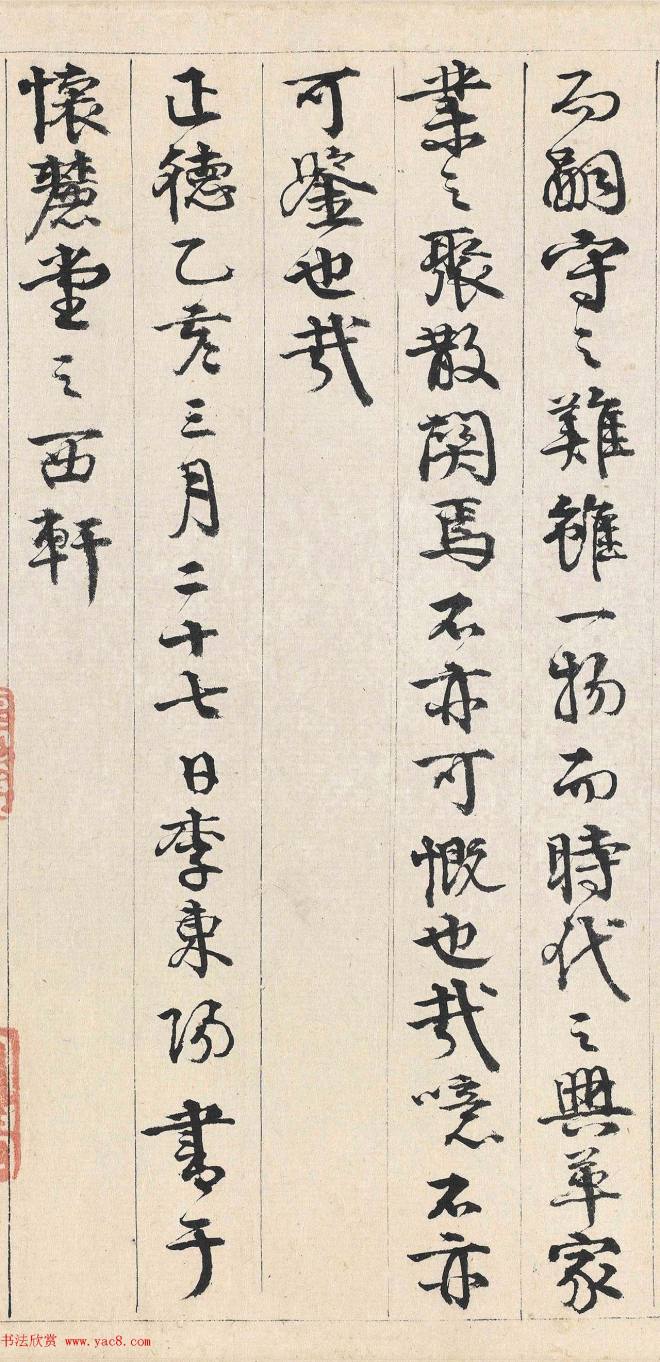 而嗣守之難雖一物而時代之興革家
業之聚散関焉不亦可慨也哉噫不亦
可鑒也哉
正德乙亥三月二十七日李東陽書于
懷麓堂之西軒
书法欣赏 www.yac8.com